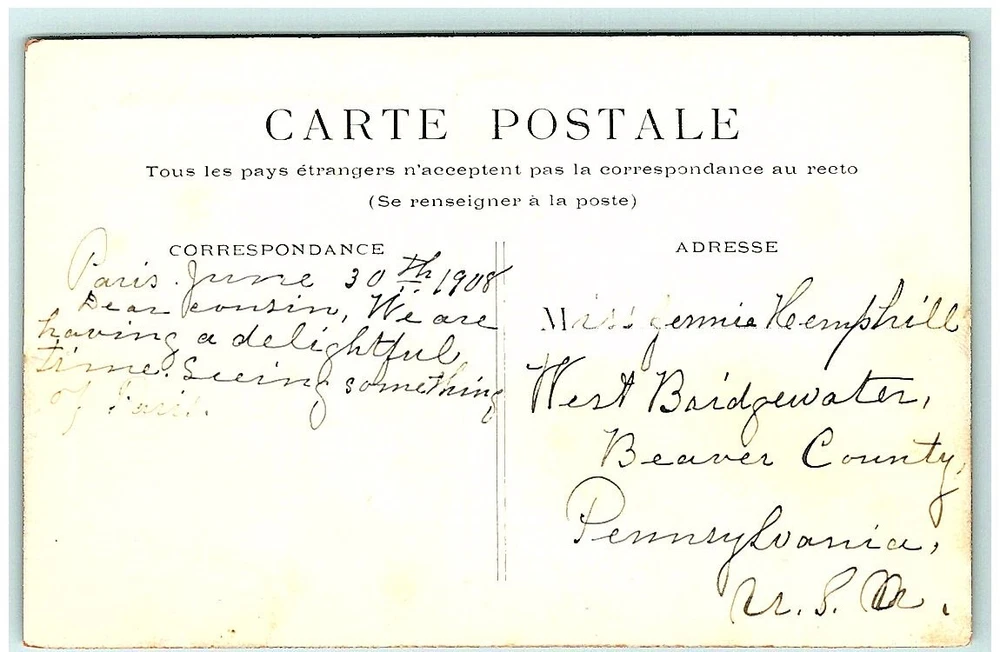 CARTE POSTALE
Tous les pays étrangers n'acceptent pas la correspondance au recto
(Se renseigner à la poste)
CORRESPONDANCE
Paris. June 30th 1908
Dear cousin, We are
having a delightful
time. Seeing something
of Paris.
ADRESSE
Miss Jennie Hemphill
West Bridgewater,
Beaver County,
Pennsylvania,
U.S.A.